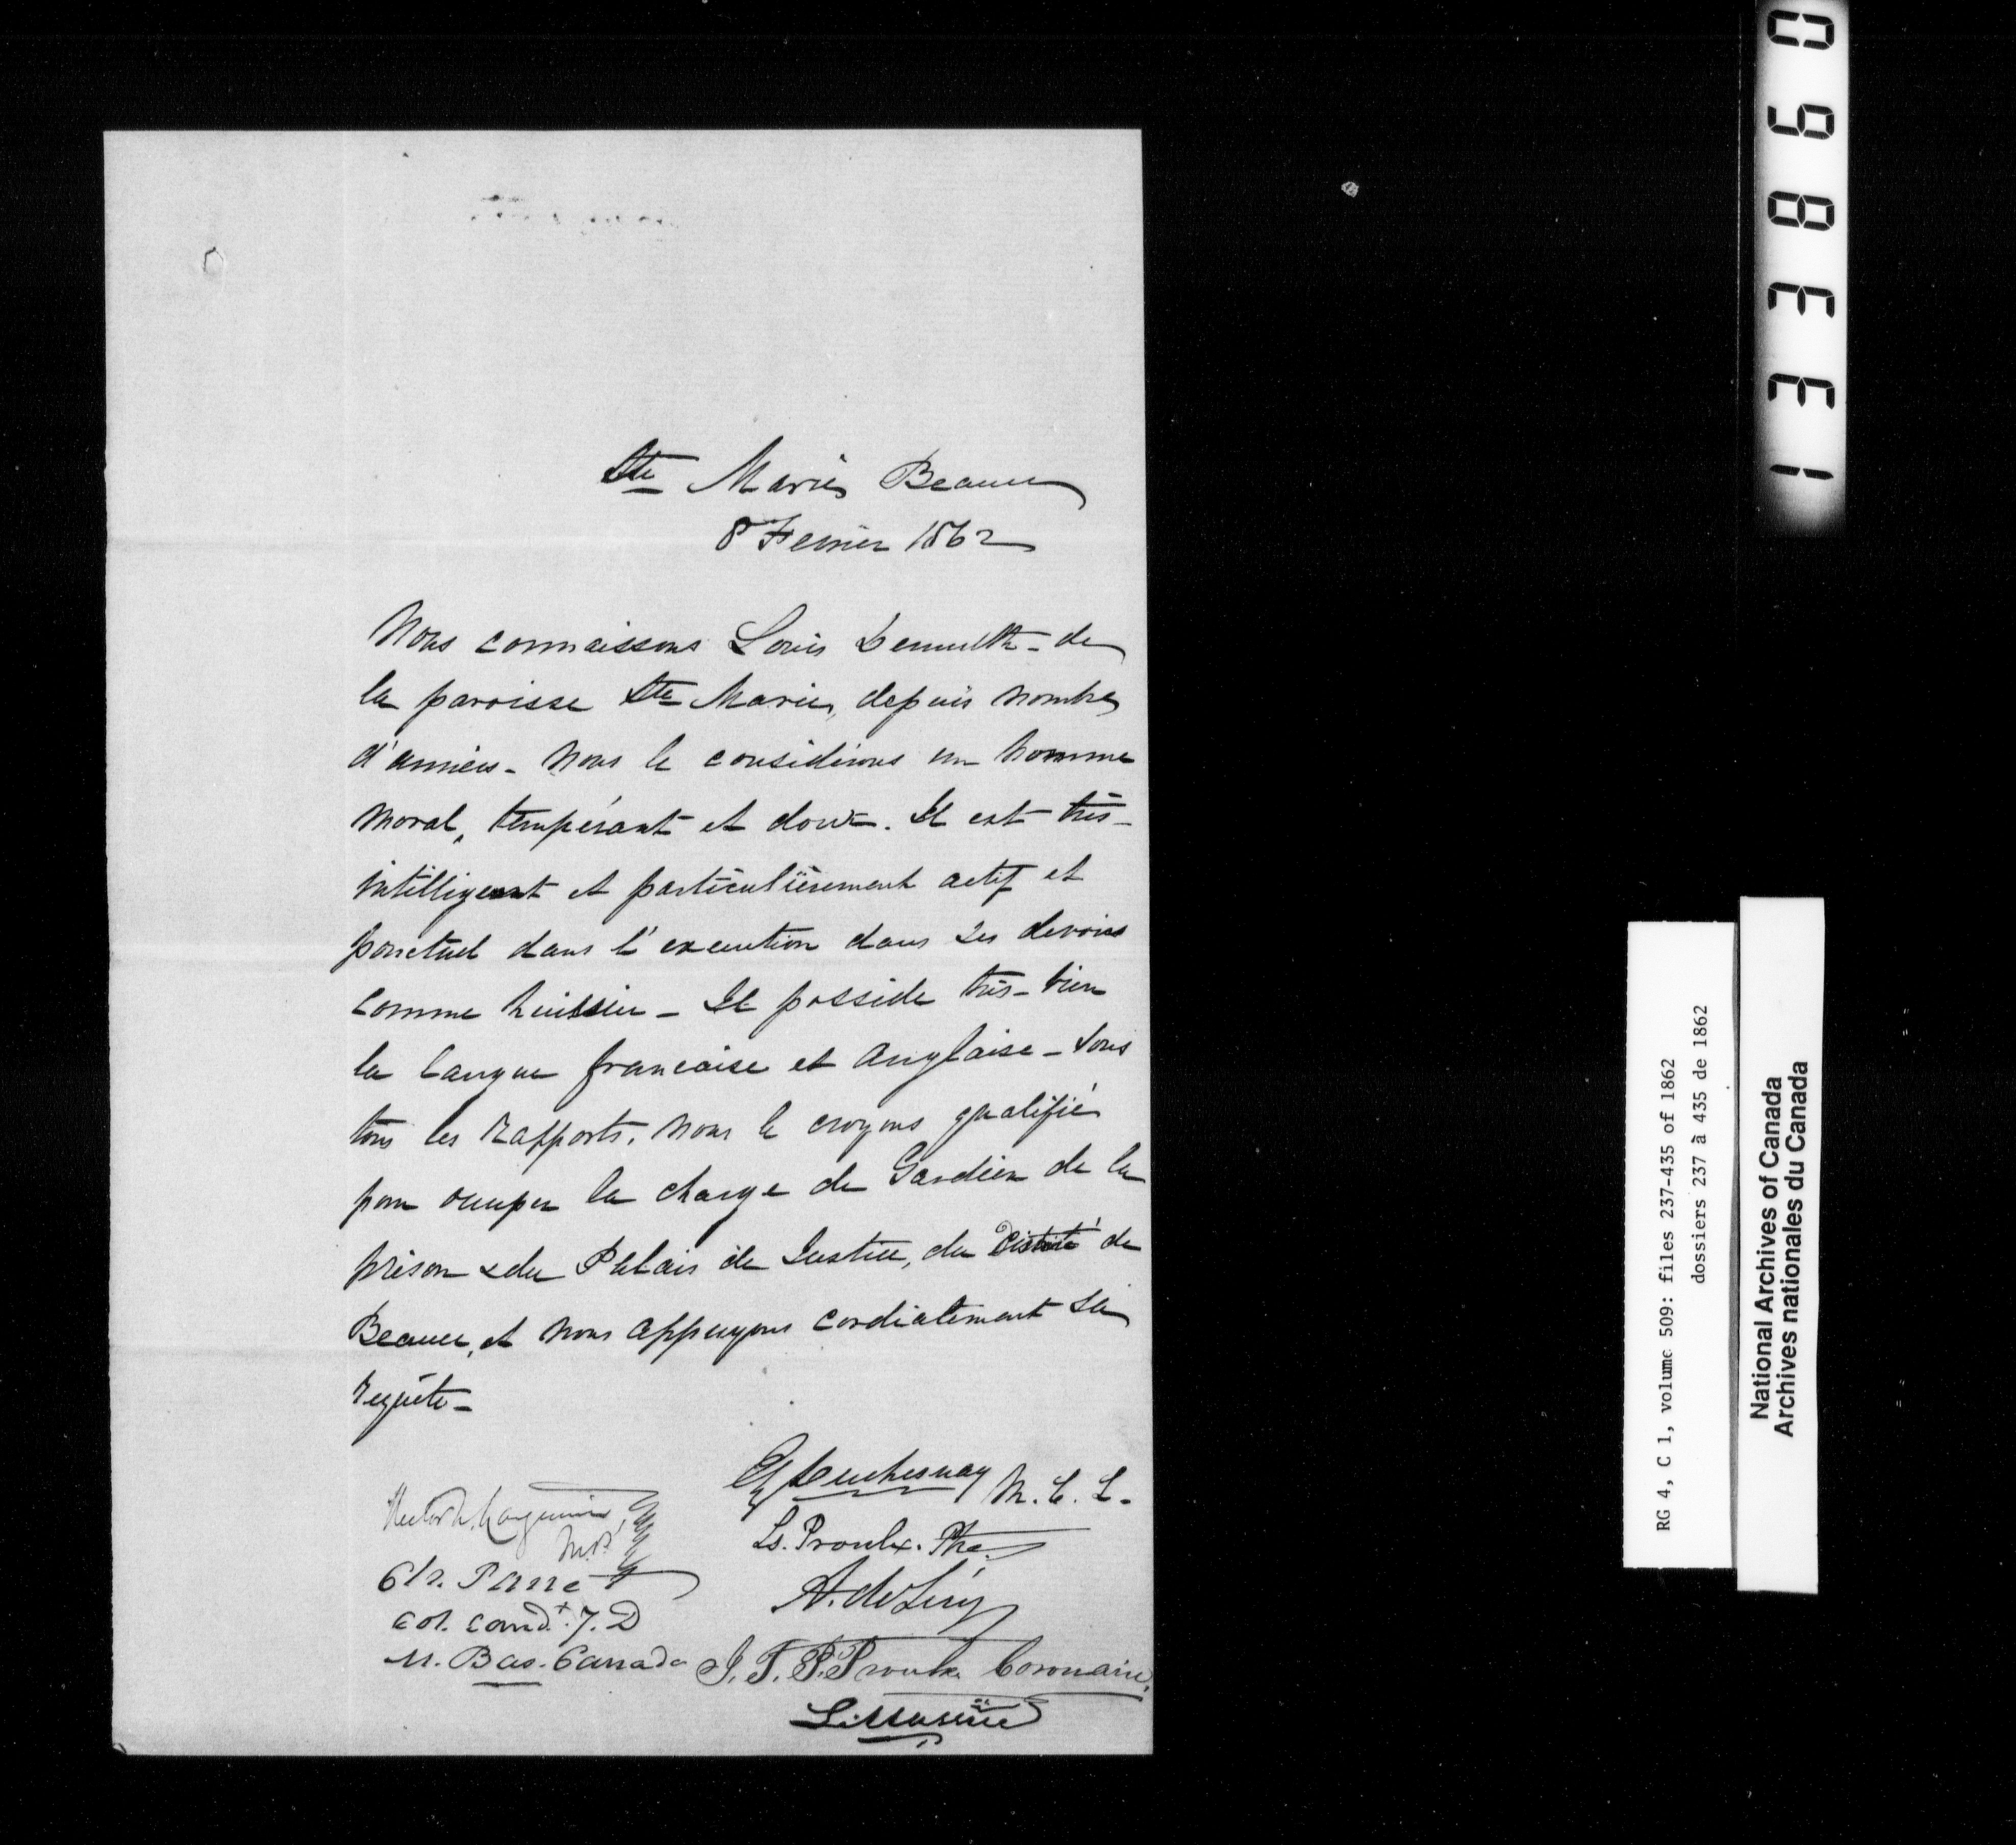 Ste Marie Beauce
8 Fevrier 1862
Nous connaissons Louis Demuth - de
la paroisse Ste Marie, depuis nombre
d'années - Nous le considérons un homme
moral, tempérant et doux. Il est très-
intelligent et particulièrement actif et
ponctuel dans l'execution dans ses devoirs
comme huissier - Il possède très-bien
la langue francaise et anglaise - Sous
tous les rapports, nous le croyons qualifié
pour occuper la charge de Gardien de la
prison & du Palais de Justice, du District de
Beauce, et nous appuyons cordialement sa
requête -
Duchesnay M. C. L.
Ls. Proulx. Ptre.
A. deLéry
J. T. P. Proulx Coronaire.
M.P.
Col. Comdt. 7. D
M. Bas. Canada
RG 4, C 1, volume 509: files 237-435 of 1862
dossiers 237 à 435 de 1862
National Archives of Canada
Archives nationales du Canada
133860